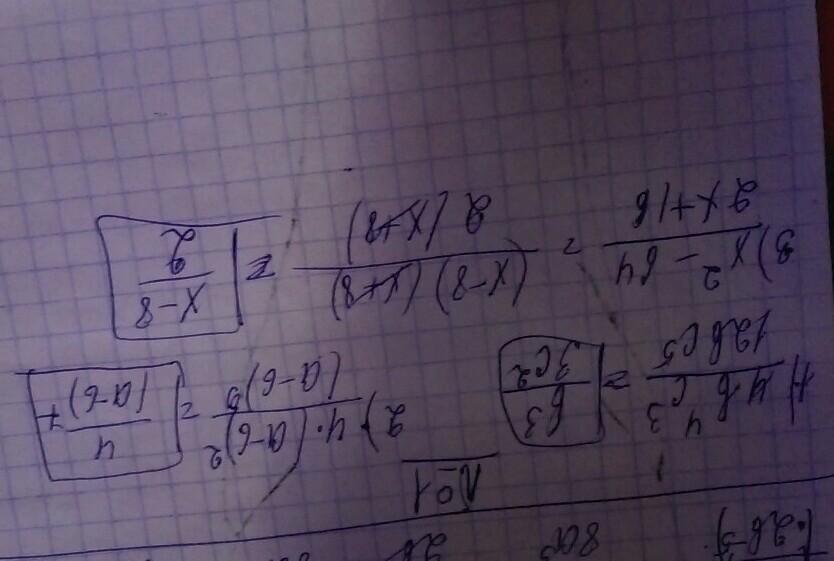 №1
1) 4b⁴c³ / 12bc⁵ = b³ / 3c² 2) 4·(a-b)² / (a-b)⁵ = 4 / (a-b)⁷
3) x² - 64 / 2x+16 = (x-8)(x+8) / 2(x+8) = x-8 / 2